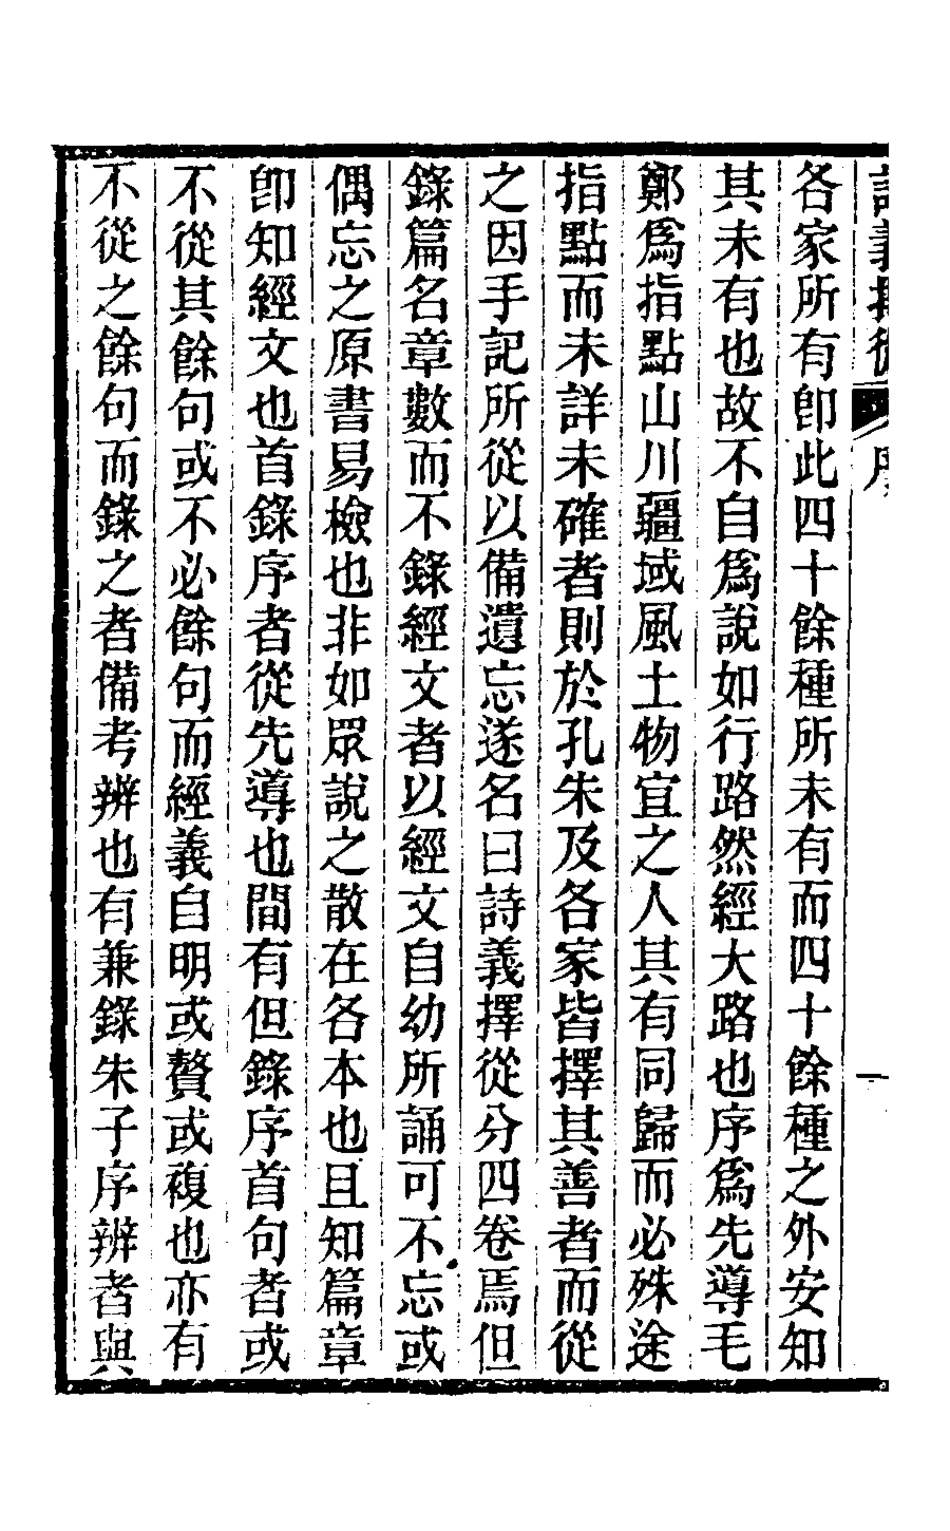 詩義擇從 序 一
各家所有卽此四十餘種所未有而四十餘種之外安知
其未有也故不自爲說如行路然經大路也序爲先導毛
鄭爲指點山川疆域風土物宜之人其有同歸而必殊途
指點而未詳未確者則於孔朱及各家皆擇其善者而從
之因手記所從以備遺忘遂名曰詩義擇從分四卷焉但
錄篇名章數而不錄經文者以經文自幼所誦可不忘或
偶忘之原書易檢也非如眾說之散在各本也且知篇章
卽知經文也首錄序者從先導也間有但錄序首句者或
不從其餘句或不必餘句而經義自明或贅或複也亦有
不從之餘句而錄之者備考辨也有兼錄朱子序辨者與